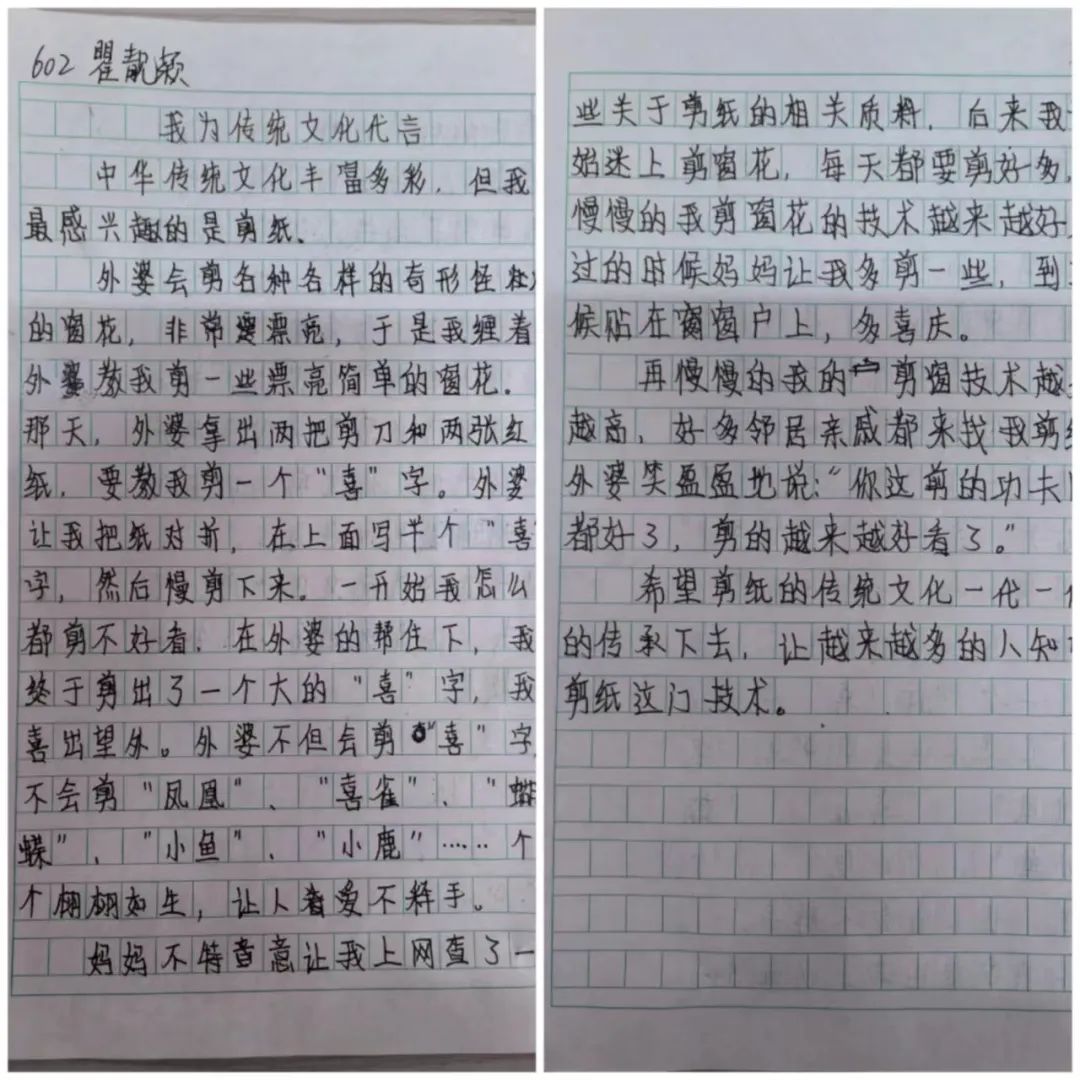 602 瞿靓颖
我为传统文化代言
中华传统文化丰富多彩，但我
最感兴趣的是剪纸、
外婆会剪各种各样的奇形怪
的窗花，非常漂亮，于是我缠着
外婆教我剪一些漂亮简单的窗花.
那天，外婆拿出两把剪刀和两张红
纸，要教我剪一个“喜”字。外婆
让我把纸对折，在上面写半个“喜
字，然后慢剪下来．一开始我怎么
都剪不好看，在外婆的帮住下，我
终于剪出了一个大的“喜”字，我
喜出望外。外婆不但会剪“喜”字
不会剪“凤凰”、“喜雀”、“蝴
蝶”、“小鱼”、“小鹿”……个
个栩栩如生，让人看爱不释手。
妈妈不特意让我上网查了一
些关于剪纸的相关质料，后来我
始迷上剪窗花，每天都要剪好多，
慢慢的我剪窗花的技术越来越好
过的时候妈妈让我多剪一些，到
候贴在窗窗户上，多喜庆。
再慢慢的我的剪窗技术越
越高，好多邻居亲戚都来找我剪
外婆笑盈盈地说：“你这剪的功夫
都好了，剪的越来越好看了。”
希望剪纸的传统文化一代一
的传承下去，让越来越多的人知
剪纸这门技术。